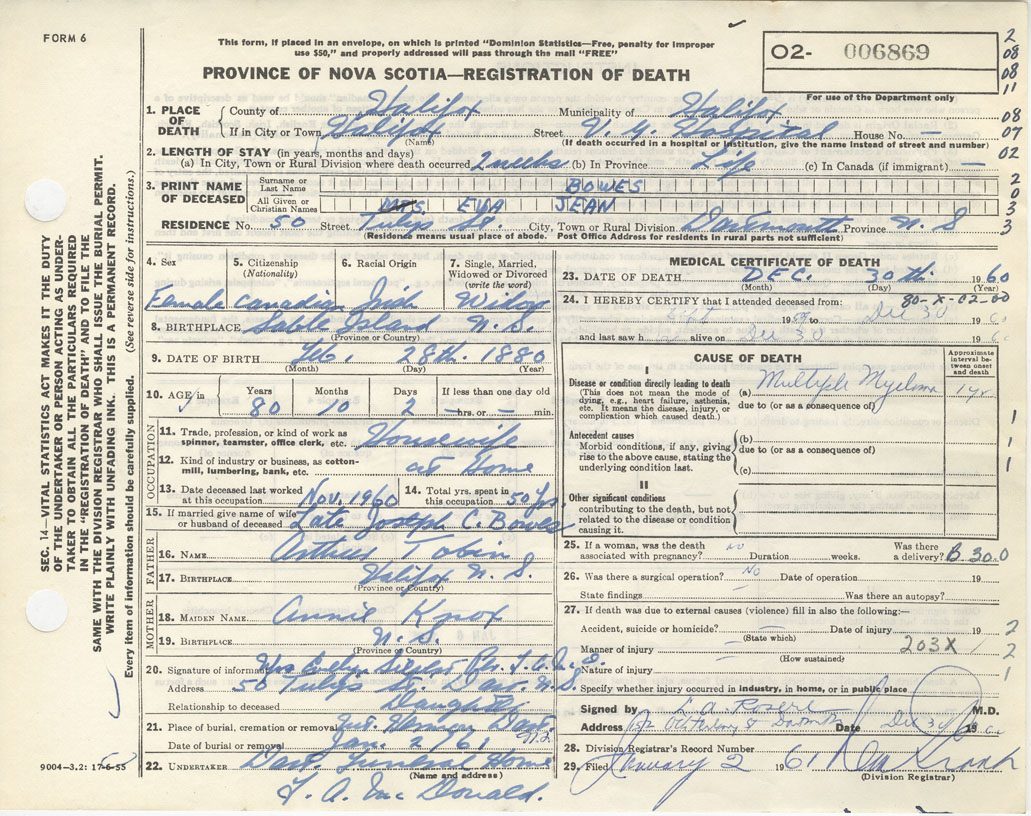 FORM 6
This form, if placed in an envelope, on which is printed "Dominion Statistics—Free, penalty for improper
use $50," and properly addressed will pass through the mail "FREE"
PROVINCE OF NOVA SCOTIA—REGISTRATION OF DEATH
O2- 006869
For use of the Department only
2
08
08
11
08
07
02
2
0
3
3
SEC. 14—VITAL STATISTICS ACT MAKES IT THE DUTY
OF THE UNDERTAKER OR PERSON ACTING AS UNDER-
TAKER TO OBTAIN ALL THE PARTICULARS REQUIRED
IN THE "REGISTRATION OF DEATH" AND FILE THE
SAME WITH THE DIVISION REGISTRAR WHO SHALL ISSUE THE BURIAL PERMIT.
WRITE PLAINLY WITH UNFADING INK. THIS IS A PERMANENT RECORD.
Every item of information should be carefully supplied. (See reverse side for instructions.)
1. PLACE OF DEATH County of Halifax Municipality of Halifax
If in City or Town Halifax Street V. G. Hospital House No. —
(Name) (If death occurred in a hospital or institution, give the name instead of street and number)
2. LENGTH OF STAY (in years, months and days)
(a) In City, Town or Rural Division where death occurred 2 weeks (b) In Province Life (c) In Canada (if immigrant) —
3. PRINT NAME OF DECEASED Surname or Last Name BOWES
All Given or Christian Names MRS EVA JEAN
RESIDENCE No. 50 Street Tulip St. City, Town or Rural Division Dartmouth Province N. S
(Residence means usual place of abode. Post Office Address for residents in rural parts not sufficient)
4. Sex 5. Citizenship (Nationality) 6. Racial Origin 7. Single, Married, Widowed or Divorced (write the word)
Female Canadian Irish Widow
8. BIRTHPLACE Sable Island N. S.
(Province or Country)
9. DATE OF BIRTH Feb. 28th. 1880
(Month) (Day) (Year)
10. AGE Years Months Days If less than one day old
80 10 2 —hrs. or — min.
OCCUPATION
11. Trade, profession, or kind of work as spinner, teamster, office clerk, etc. Housewife
12. Kind of industry or business, as cotton-mill, lumbering, bank, etc. at Home
13. Date deceased last worked at this occupation Nov. 1960 14. Total yrs. spent in this occupation 50 yrs.
15. If married give name of wife or husband of deceased Late Joseph C. Bowes
FATHER
16. NAME Arthur Tobin
17. BIRTHPLACE Halifax N. S.
(Province or Country)
MOTHER
18. MAIDEN NAME Annie Knox
19. BIRTHPLACE N. S.
(Province or Country)
20. Signature of informant Mrs Evelyn
Address 50 Tulip St. Dart. N.S.
Relationship to deceased Daughter
21. Place of burial, cremation or removal Mt. Hermon Dart. N.S.
Date of burial or removal Jan. 2/61
22. UNDERTAKER Dart. Funeral Home
(Name and address)
9004—3.2: 17-6-55
T. A. McDonald.
MEDICAL CERTIFICATE OF DEATH
23. DATE OF DEATH DEC. 30th 1960
(Month) (Day) (Year)
24. I HEREBY CERTIFY that I attended deceased from: 80-X-02-00
Sept 19 to Dec 30 1960
and last saw h alive on Dec 30 1960
CAUSE OF DEATH
Approximate interval between onset and death
I
Disease or condition directly leading to death (a) Multiple Myeloma 1 yr.
(This does not mean the mode of dying, e.g., heart failure, asthenia, etc. It means the disease, injury, or complication which caused death.) due to (or as a consequence of)
Antecedent causes (b)
Morbid conditions, if any, giving rise to the above cause, stating the underlying condition last. due to (or as a consequence of)
(c)
1
1
1
II
Other significant conditions
contributing to the death, but not related to the disease or condition causing it.
25. If a woman, was the death associated with pregnancy? no Duration weeks. Was there a delivery? B.300
26. Was there a surgical operation? No Date of operation 19
State findings Was there an autopsy?
27. If death was due to external causes (violence) fill in also the following:—
Accident, suicide or homicide? Date of injury 19 2
(State which)
Manner of injury 203X 2
(How sustained)
Nature of injury 1
Specify whether injury occurred in industry, in home, or in public place
Signed by M.D.
Address Date Dec 30 1960
28. Division Registrar's Record Number
29. Filed January 2 1961
(Division Registrar)